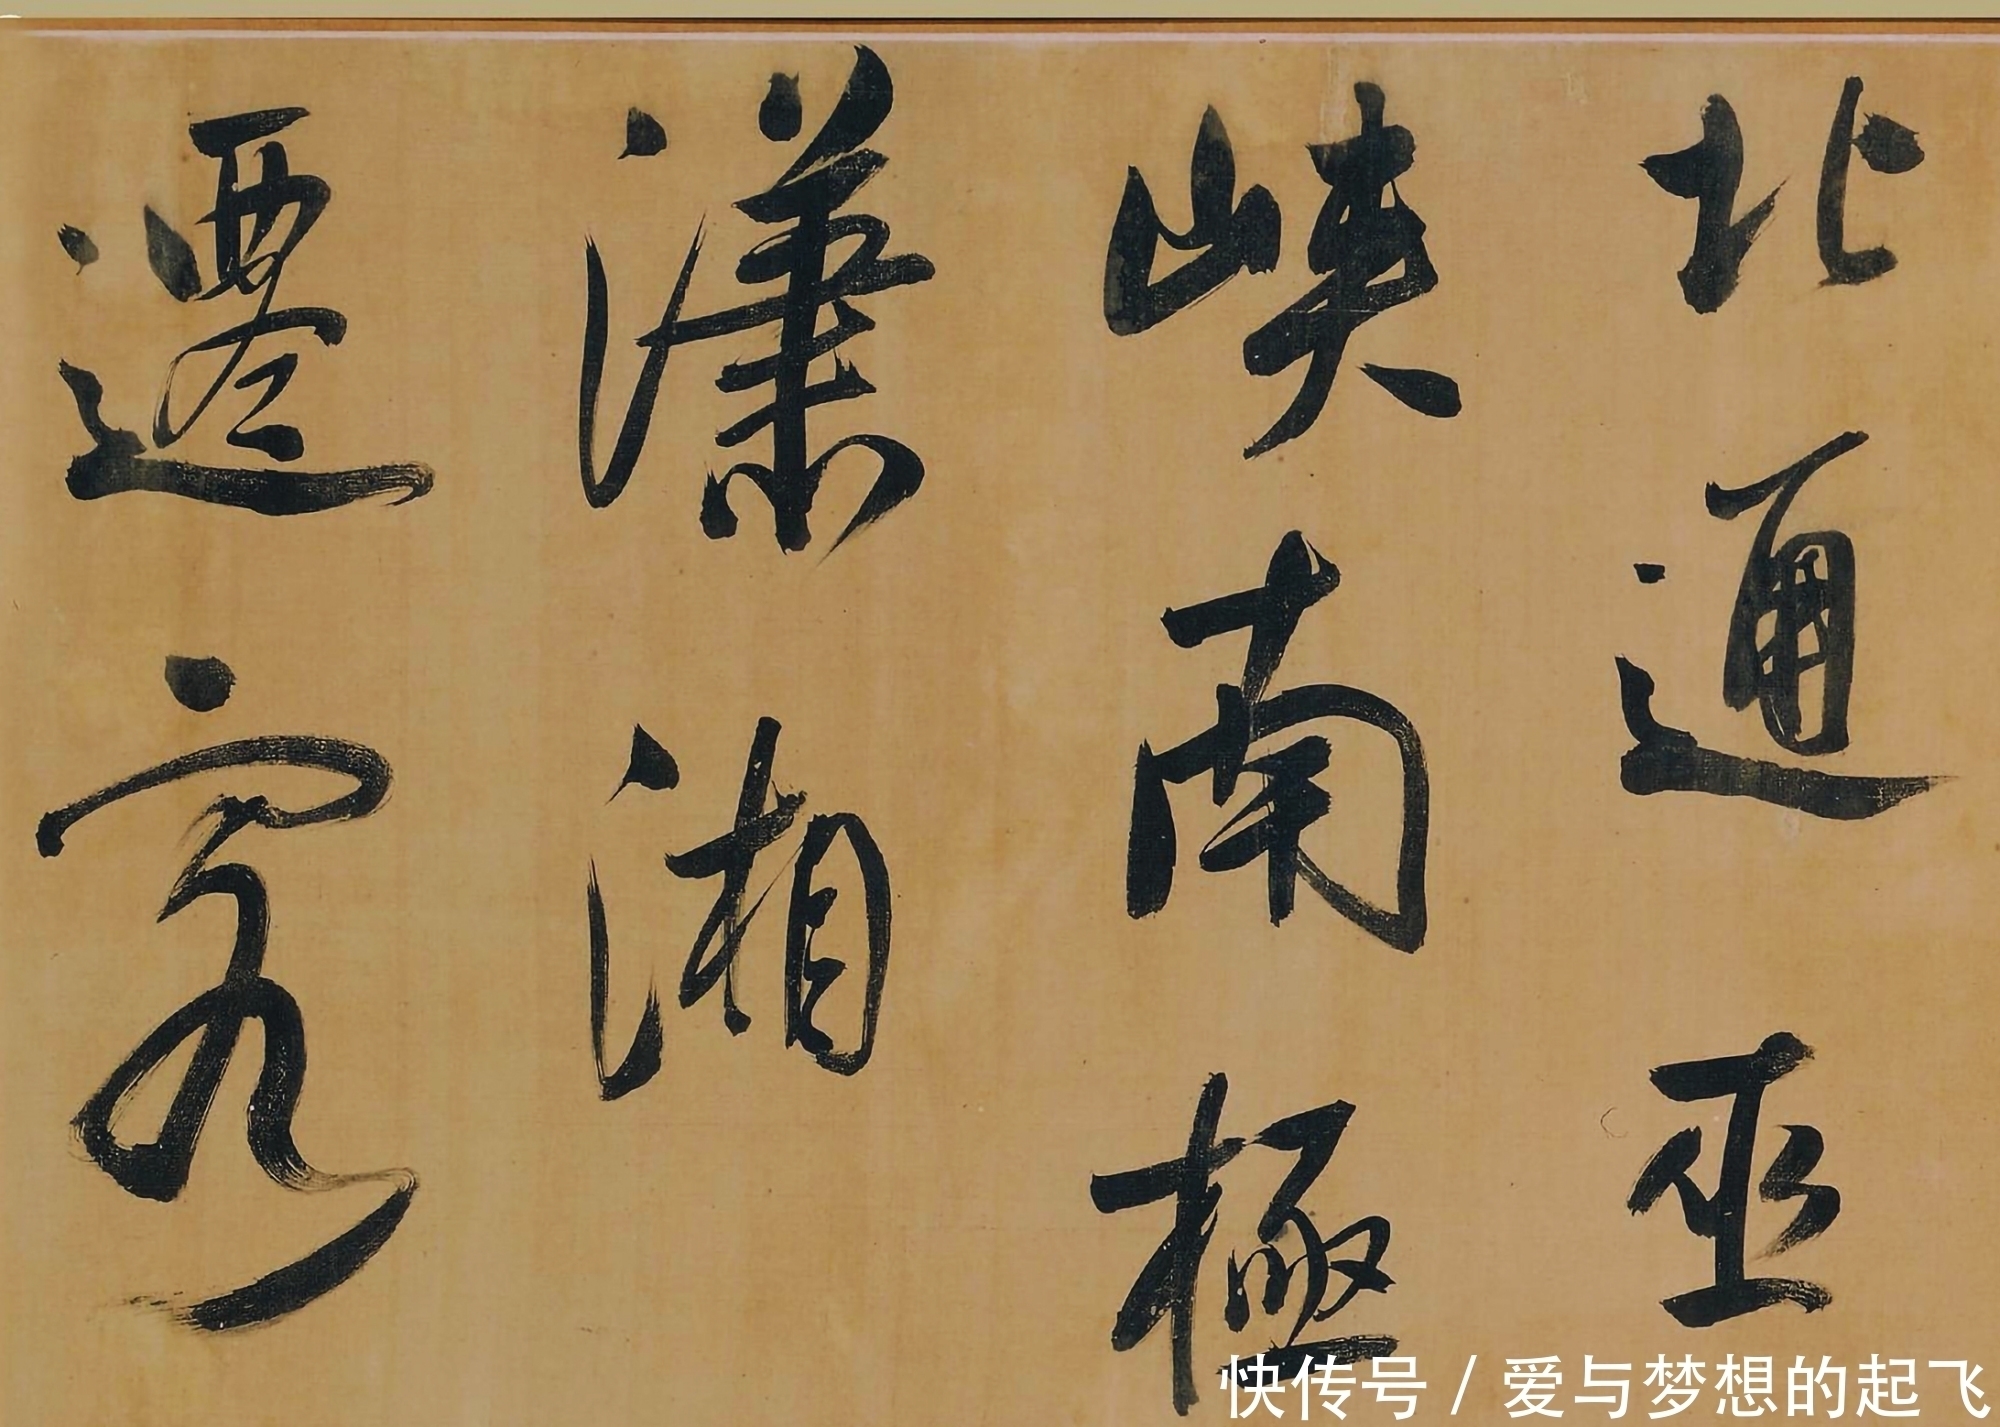 北通巫
峽南極
瀟湘
遷客
快传号 / 爱与梦想的起飞